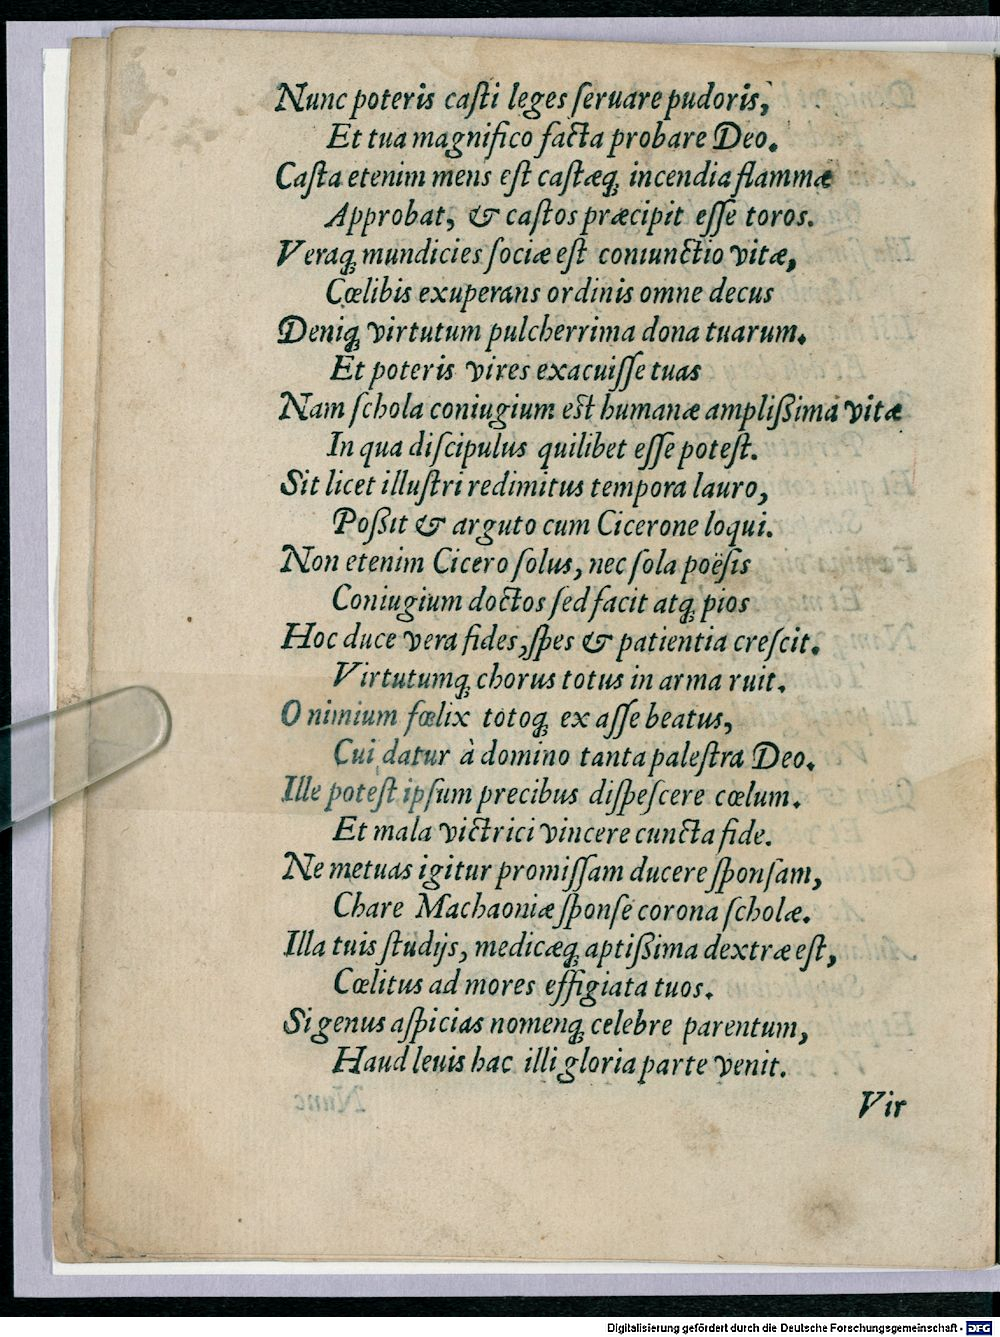 Nunc poteris casti leges ſeruare pudoris,
Et tua magnifico facta probare Deo.
Caſta etenim mens eſt caſtæq́ incendia flammæ
Approbat, & caſtos præcipit eſſe toros.
Veraq́ mundicies ſociæ eſt coniunctio vitæ,
Cœlibis exuperans ordinis omne decus
Deniq́ virtutum pulcherrima dona tuarum.
Et poteris vires exacuiſſe tuas
Nam ſchola coniugium est humanæ ampliſsima vitæ
In qua diſcipulus quilibet eſſe poteſt.
Sit licet illuſtri redimitus tempora lauro,
Poßit & arguto cum Cicerone loqui.
Non etenim Cicero ſolus, nec ſola poëſis
Coniugium doctos ſed facit atq́ pios
Hoc duce vera fides, ſpes & patientia creſcit.
Virtutumq́ chorus totus in arma ruit.
O nimium fœlix totoq́ ex aſſe beatus,
Cui datur à domino tanta paleſtra Deo.
Ille poteſt ipſum precibus diſpeſcere cœlum.
Et mala victrici vincere cuncta fide.
Ne metuas igitur promiſſam ducere ſponſam,
Chare Machaoniæ ſponſe corona ſcholæ.
Illa tuis ſtudijs, medicæq́ aptißima dextræ eſt,
Cœlitus ad mores effigiata tuos.
Si genus aſpicias nomenq́ celebre parentum,
Haud leuis hac illi gloria parte venit.
Vir
Digitalisierung gefördert durch die Deutsche Forschungsgemeinschaft - DFG